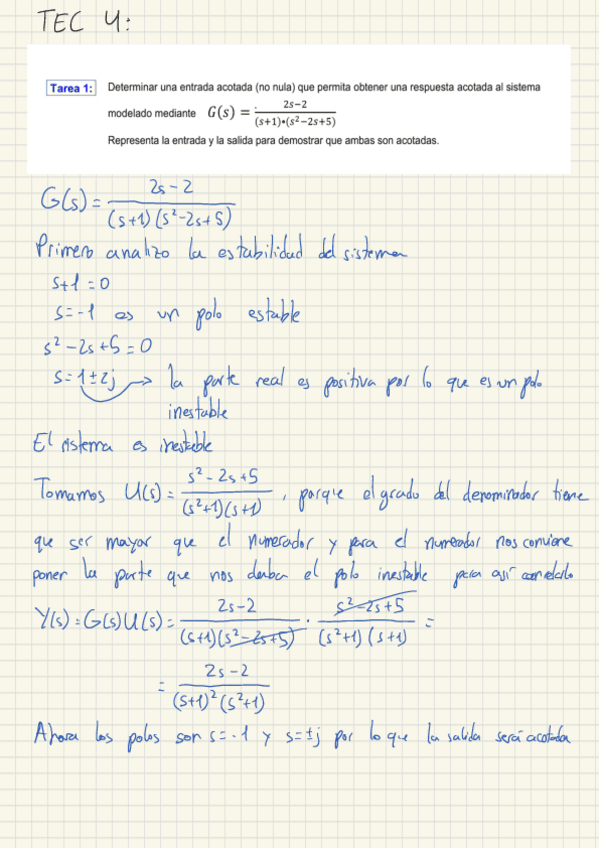 TEC 4:
Tarea 1: Determinar una entrada acotada (no nula) que permita obtener una respuesta acotada al sistema
modelado mediante G(s) = 2s-2 / (s+1)•(s²-2s+5)
Representa la entrada y la salida para demostrar que ambas son acotadas.
G(s) = 2s-2 / (s+1)(s²-2s+5)
Primero analizo la estabilidad del sistema
s+1=0
s=-1 es un polo estable
s²-2s+5=0
s=1±2j → la parte real es positiva por lo que es un polo
inestable
El sistema es inestable
Tomamos U(s) = s²-2s+5 / (s²+1)(s+1), porque el grado del denominador tiene
que ser mayor que el numerador y para el numerador nos conviene
poner la parte que nos daba el polo inestable para así cancelarlo
Y(s)=G(s)U(s)= 2s-2 / (s+1)(s²-2s+5) · s²-2s+5 / (s²+1)(s+1) =
= 2s-2 / (s+1)²(s²+1)
Ahora los polos son s=-1 y s=±j por lo que la salida será acotada